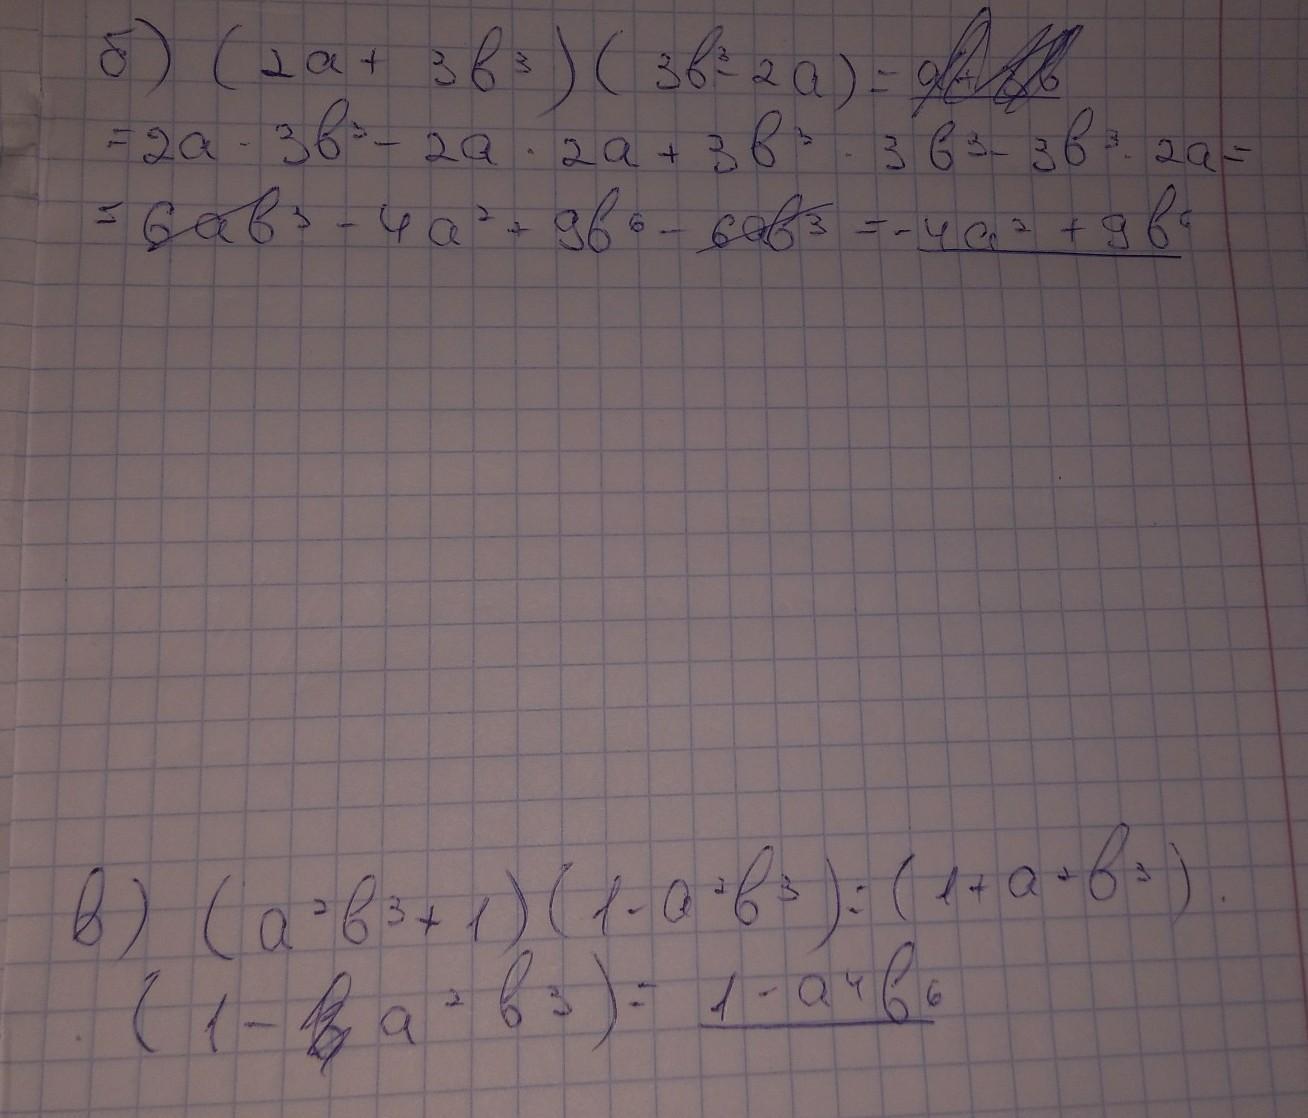 б) (2a + 3b³)(3b³ - 2a) =
= 2a · 3b³ - 2a · 2a + 3b³ · 3b³ - 3b³ · 2a =
= 6ab³ - 4a² + 9b⁶ - 6ab³ = -4a² + 9b⁶
в) (a²b³ + 1)(1 - a²b³) = (1 + a²b³) ·
· (1 - a²b³) = 1 - a⁴b⁶